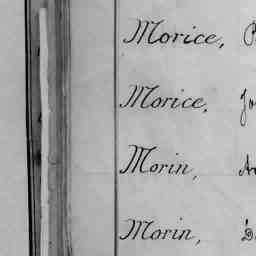 Morice,
Morice,
Morin,
Morin,